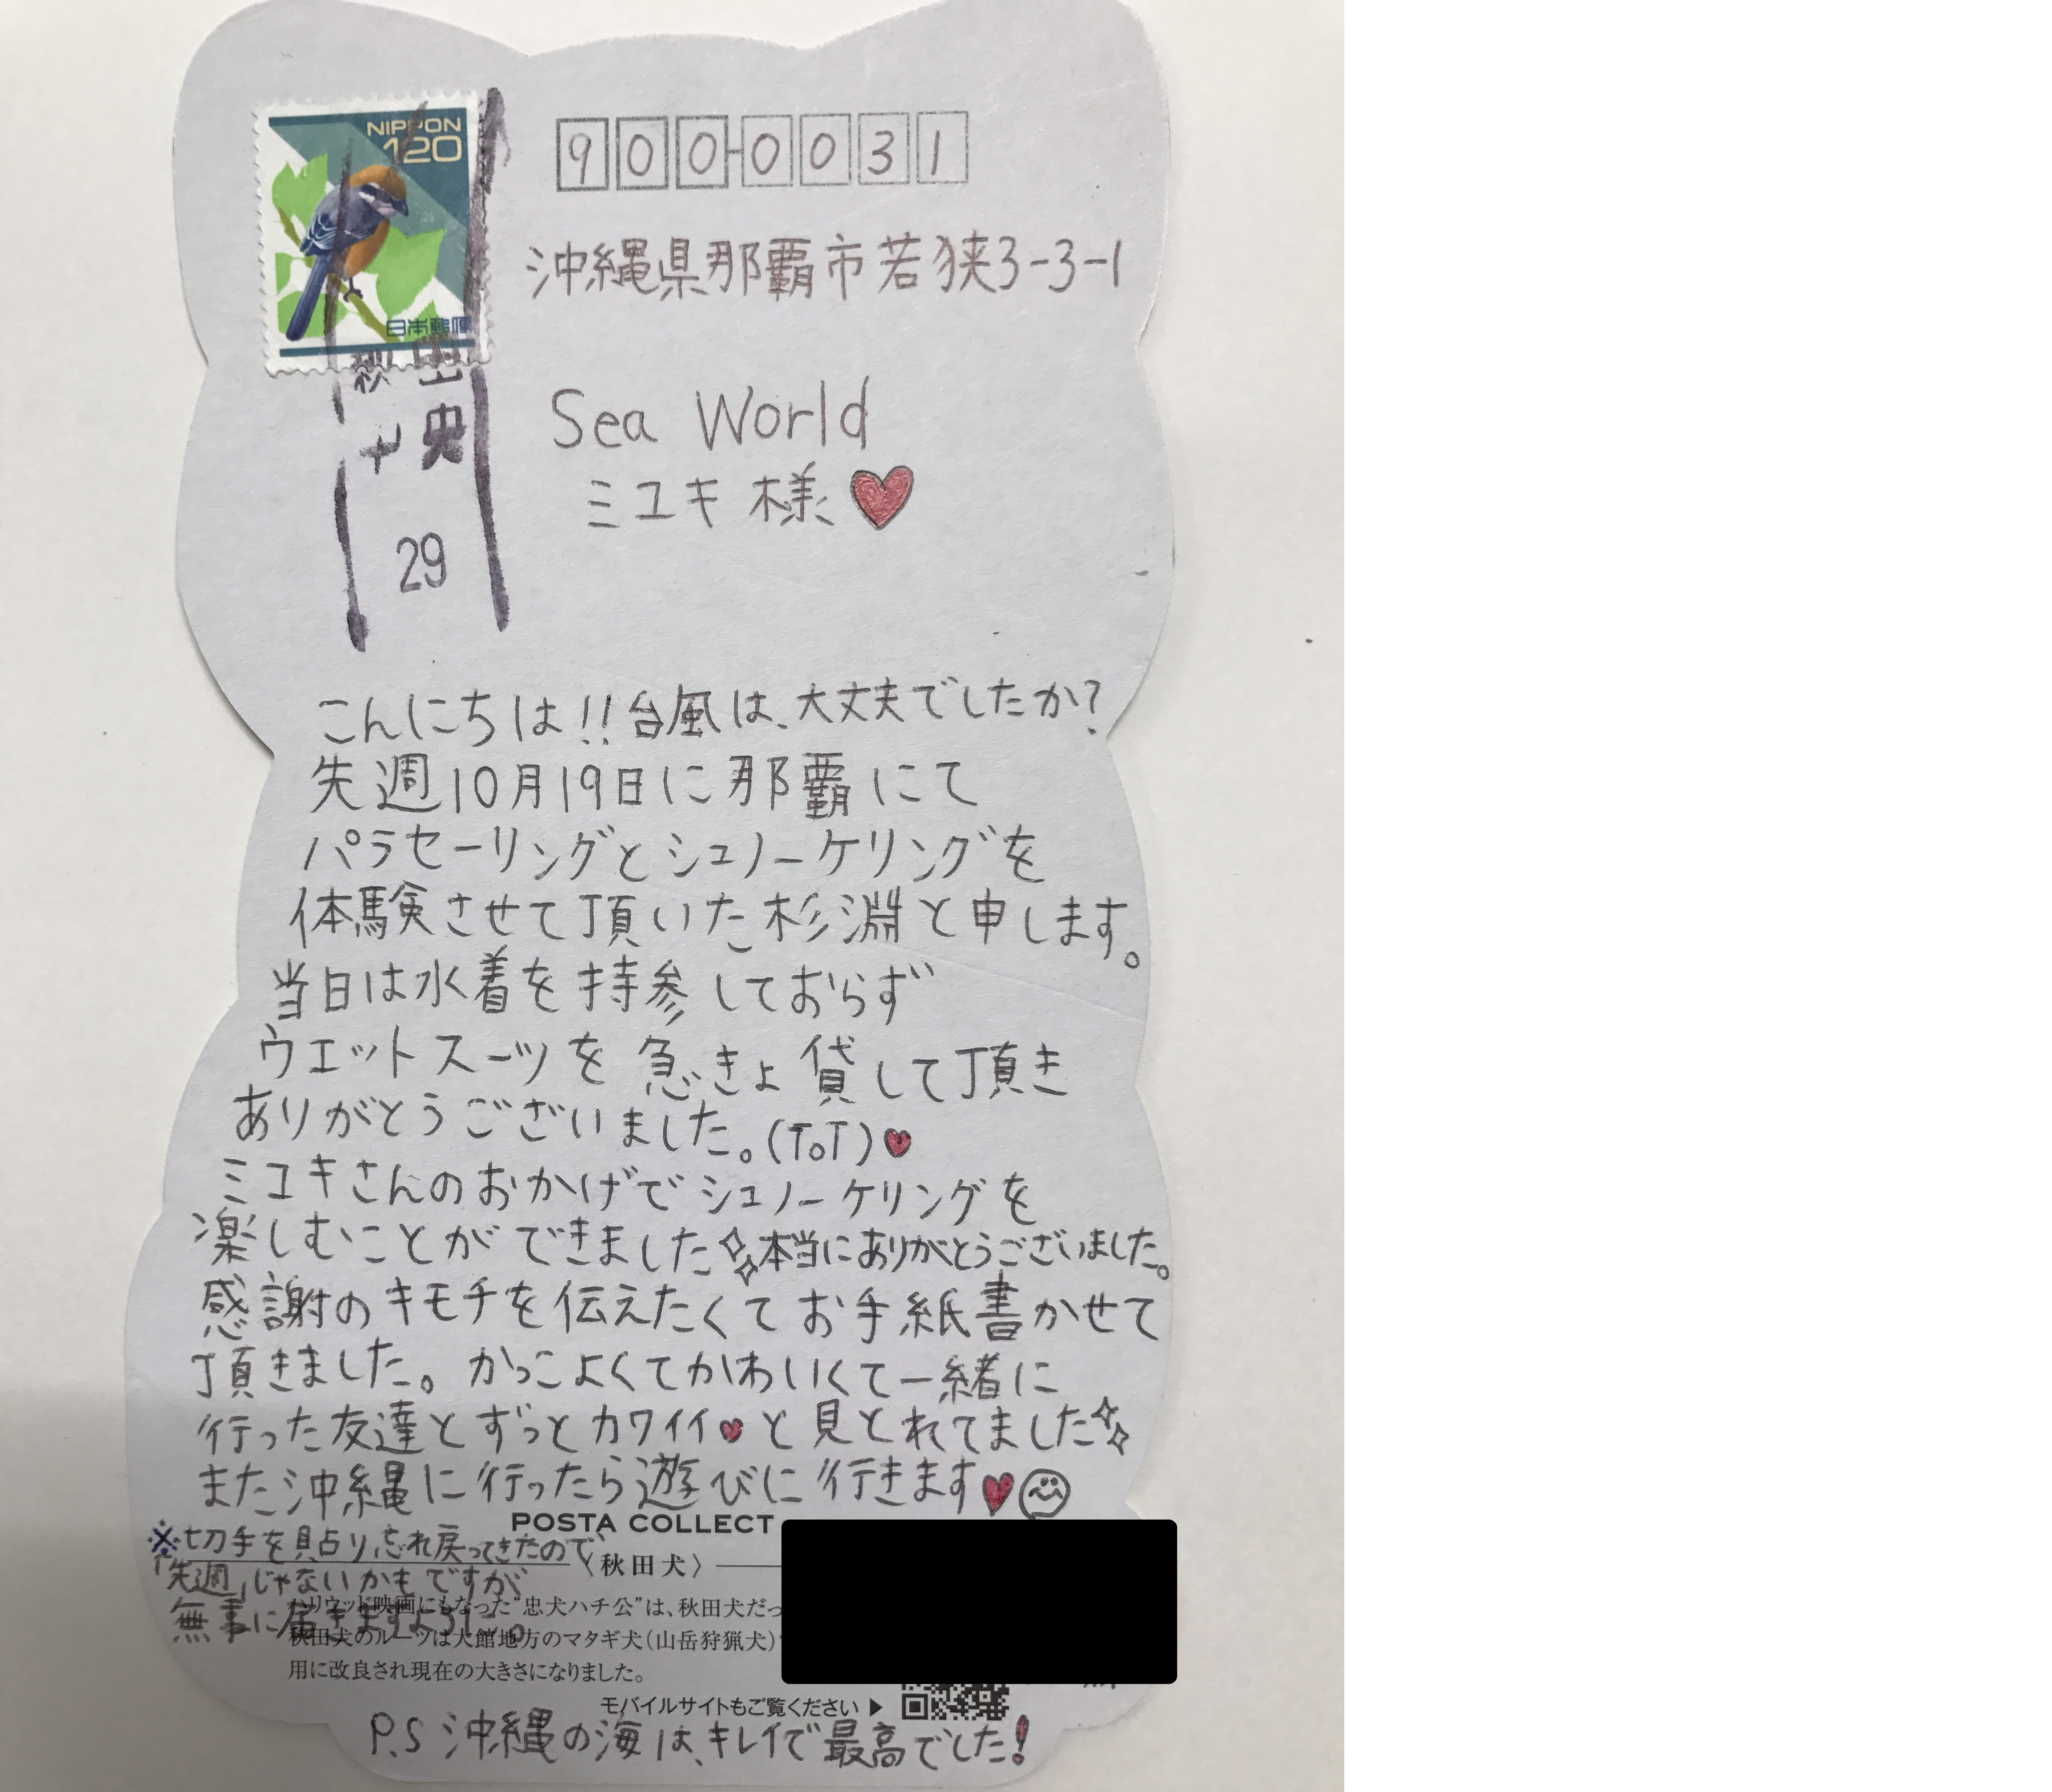 NIPPON
120
日本郵便
秋田
中央
29
900-0031
沖縄県那覇市若狭3-3-1
Sea World
ミユキ 様
こんにちは!!台風は、大丈夫でしたか?
先週10月19日に那覇にて
パラセーリングとシュノーケリングを
体験させて頂いた杉淵と申します。
当日は水着を持参しておらず
ウエットスーツを急きょ貸して頂き
ありがとうございました。(ToT)
ミユキさんのおかげでシュノーケリングを
楽しむことができました 本当にありがとうございました。
感謝のキモチを伝えたくてお手紙書かせて
頂きました。かっこよくてかわいくて一緒に
行った友達とずっとカワイイ♥と見とれてました
また沖縄に行ったら遊びに行きます♥
POSTA COLLECT
※切手を貼り忘れ戻ってきたので、
〈秋田犬〉
「先週」じゃないかもですが
無事に届きますように。
ハリウッド映画にもなった“忠犬ハチ公”は、秋田犬だっ
秋田犬のルーツは大館地方のマタギ犬(山岳狩猟犬)
用に改良され現在の大きさになりました。
モバイルサイトもご覧ください ▶
P.S 沖縄の海は、キレイで最高でした!